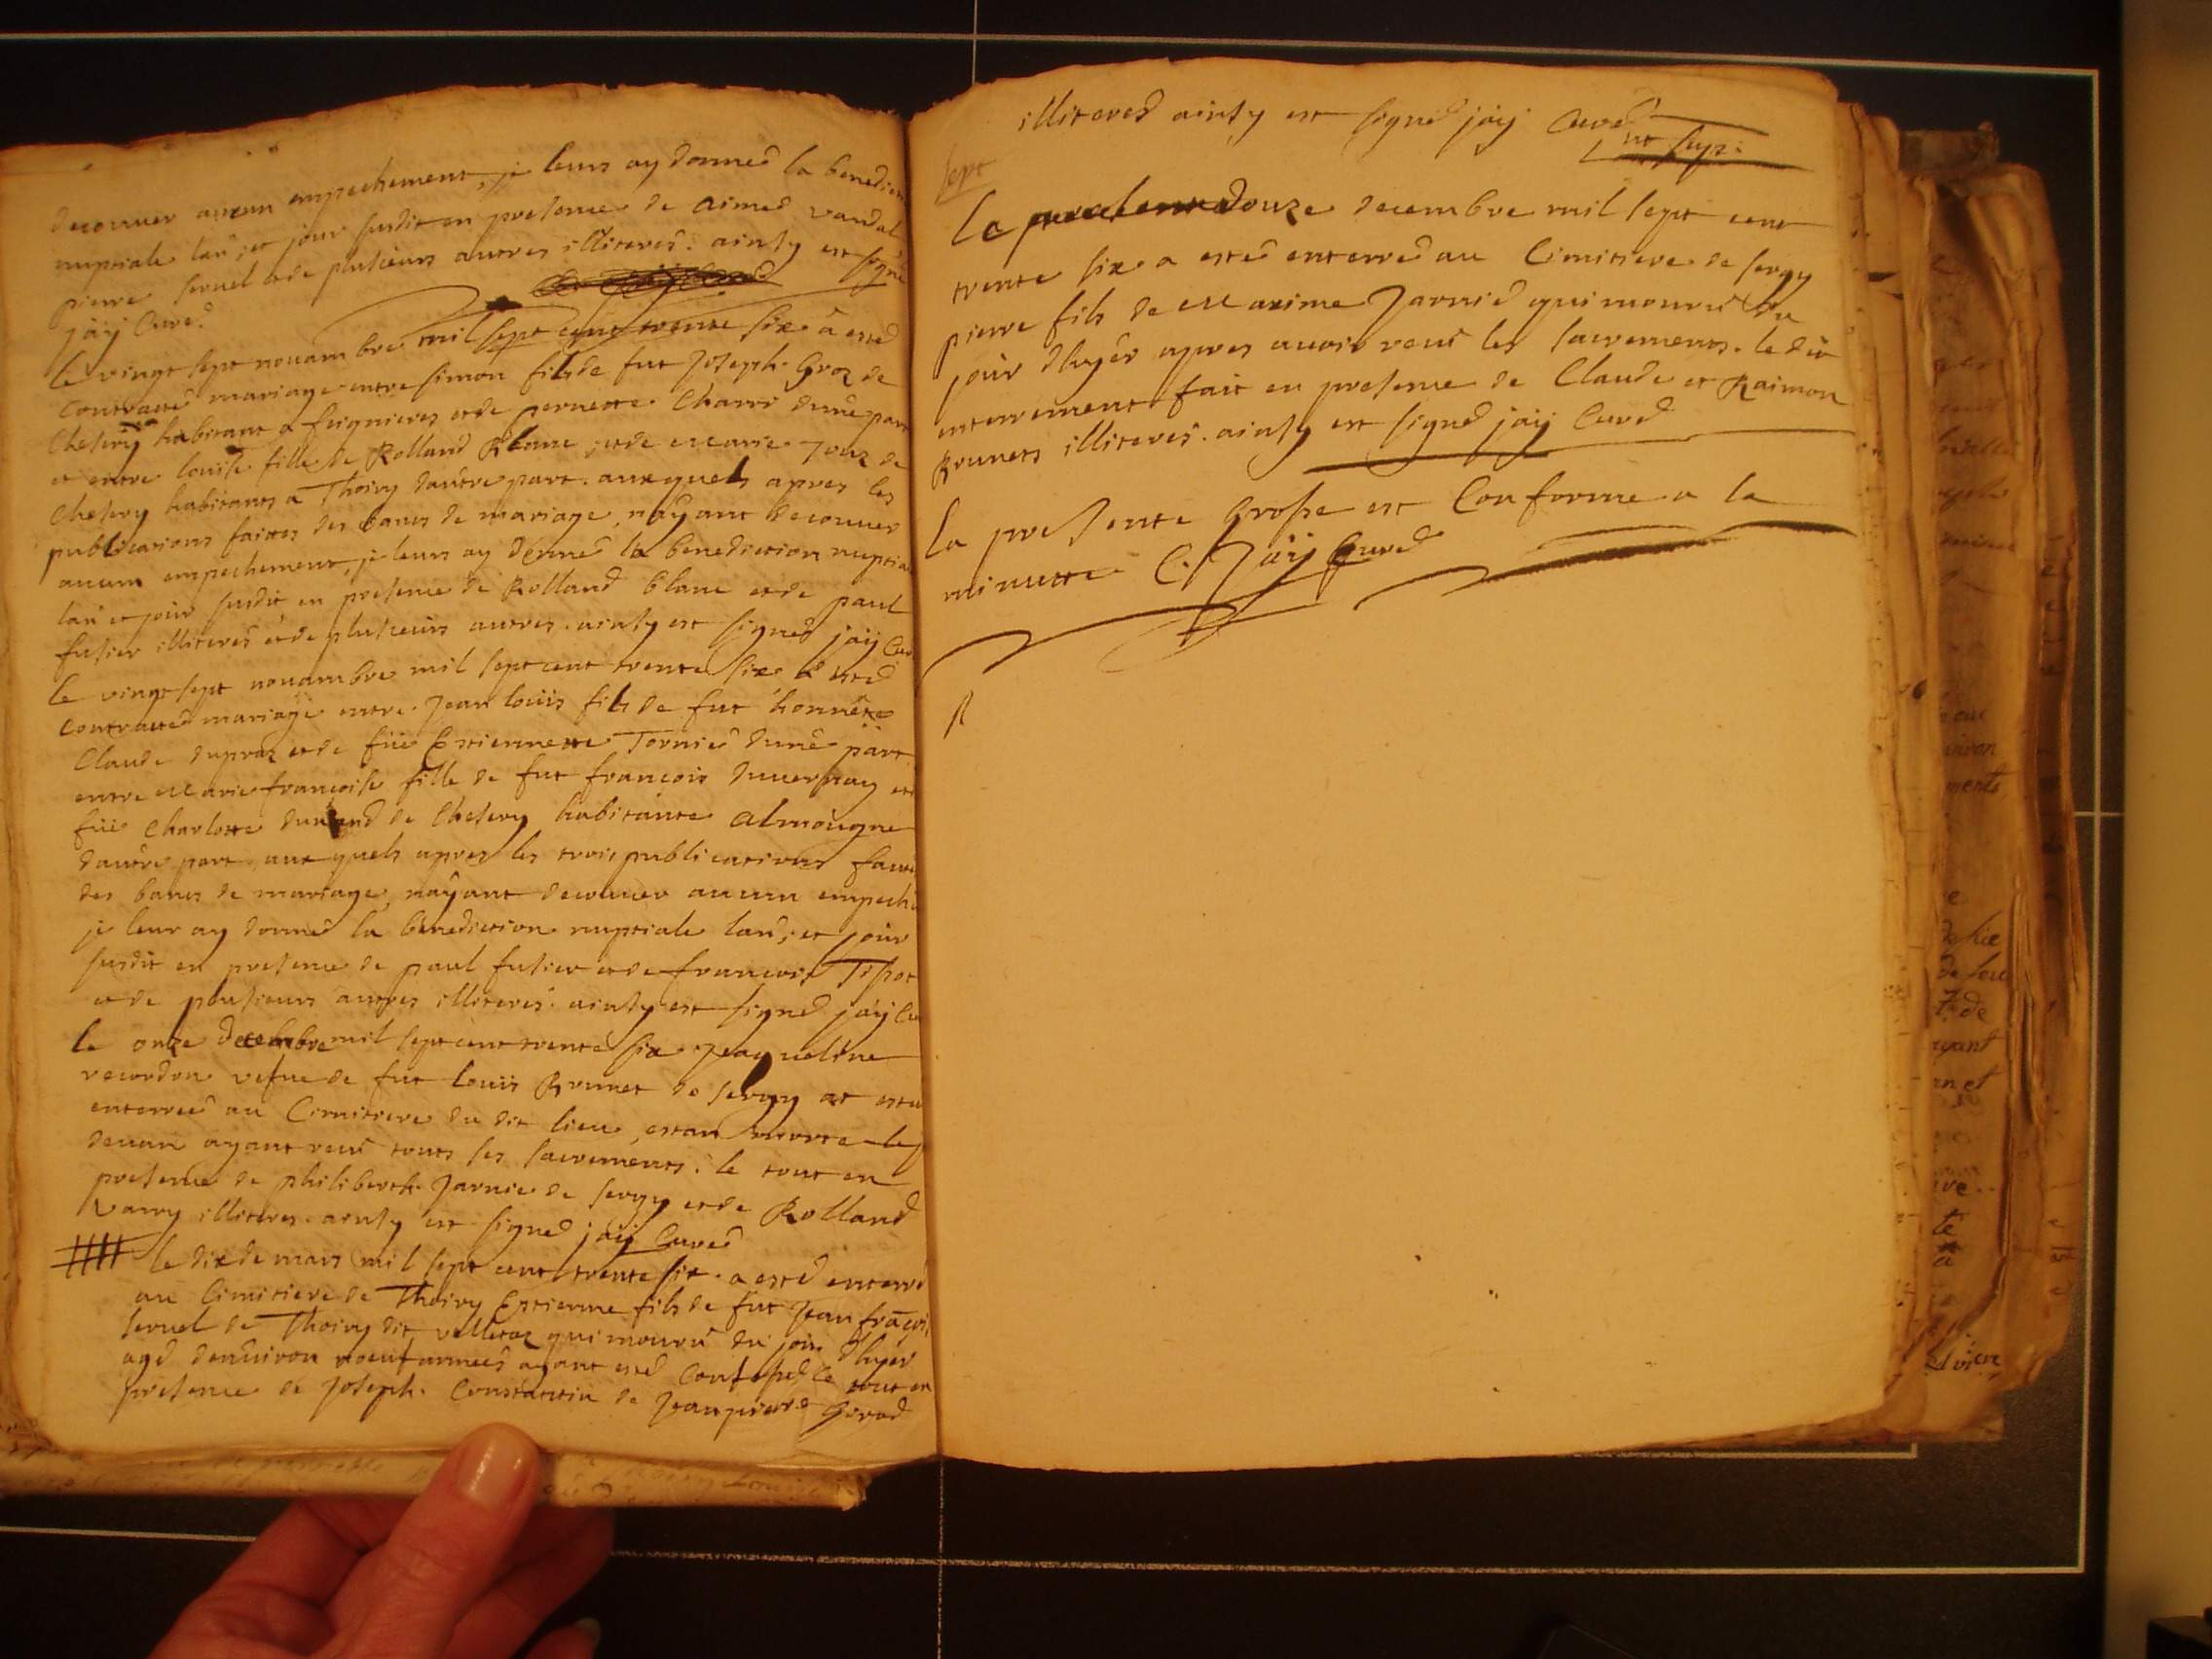 decouuer aucun empechement, je leurs ay donneé la benediction
nuptiale lan, et jour susdit en presence de Aimeé vandal,
pierre seruel et de plusieurs autres illitereś. ainsy est signé
jaÿ Cureé
le vingt sept nouambre mil sept cent trente six a esté
Contracté mariage entre simon fils de fut Joseph Groz de
Chesery habitant a feignieres et de pernette Charri dune part
et entre louise fille de Rolland Blanc, et de Marie Jouz de
Chesery habitants a Thoiry dautre part. auxquels apres les
publications faites des bancs de mariage, naÿant decouuer
aucun empechement, je leurs ay donné la benediction nuptiale
lan et jour susdit en presence de Rolland blanc et de paul
fusier illitereś et de plusieurs autres. ainsy est signeé jaÿ Cur
le vingt sept nouambre mil sept cent trente six a esté
Contracteé mariage entre Jean louïs fils de fut honnéte
Claude dupraz et de füe Estiennette Tornieŕ dune part
entre Marie françoise fille de fut françois duuernay et
füe Charlotte durand de Chesery habitante almougne
dautre part. aux quels apres les trois publications faites
des bancs de mariage, naÿant decouuer aucun empeche
je leur ay donné la benediction nuptiale lan, et jour
susdit en presence de paul fusier et de françois Tisot
et de plusieurs autres illitereś. ainsy est signeé jaÿ Cu
le onze decembre mil sept cent trente six Jaqueline
recordon vefue de fut louis Brunet de sergy at esteé
enterreé au Cimitiere du dit lieu, estan morte le
deuan ayant receu touts ses sacrements. le tout en
presence de philiberth Jarnie de sergy et de Rolland
illiteres. ainsy est signé jaÿ Cureé
le dix de mars mil sept cent trente six a esté enterré
au Cimitiere de Thoiry Estienne fils de fut Jean françois
seruel de Thoiry dit velleraz qui mourut du jour dhyér
ageé denuiron noeuf anneeś ayant esté Confesseé le tout en
presence de Joseph Constantin de Jeanpierre Girod
illitereś ainsy est signeé jaÿ Cureé
ut sup:
sept
Le douze decembre mil sept cent
trente six a esté enterré au Cimitiere de sergy
pierre fils de Maxime Jarnié qui mourut du
jour dhyér apres auoir receu les sacrements. le dit
enterrement fait en presence de Claude et Raimon
Brunets illitereś. ainsy est signeé jaÿ Cureé
La presente grosse est Conforme a la
minutte C. Jaÿ Cureé